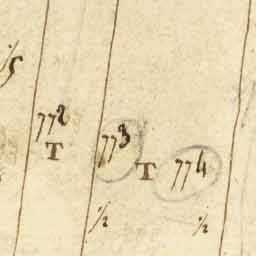 1/5
772
T
773
T
774
1/2
1/2